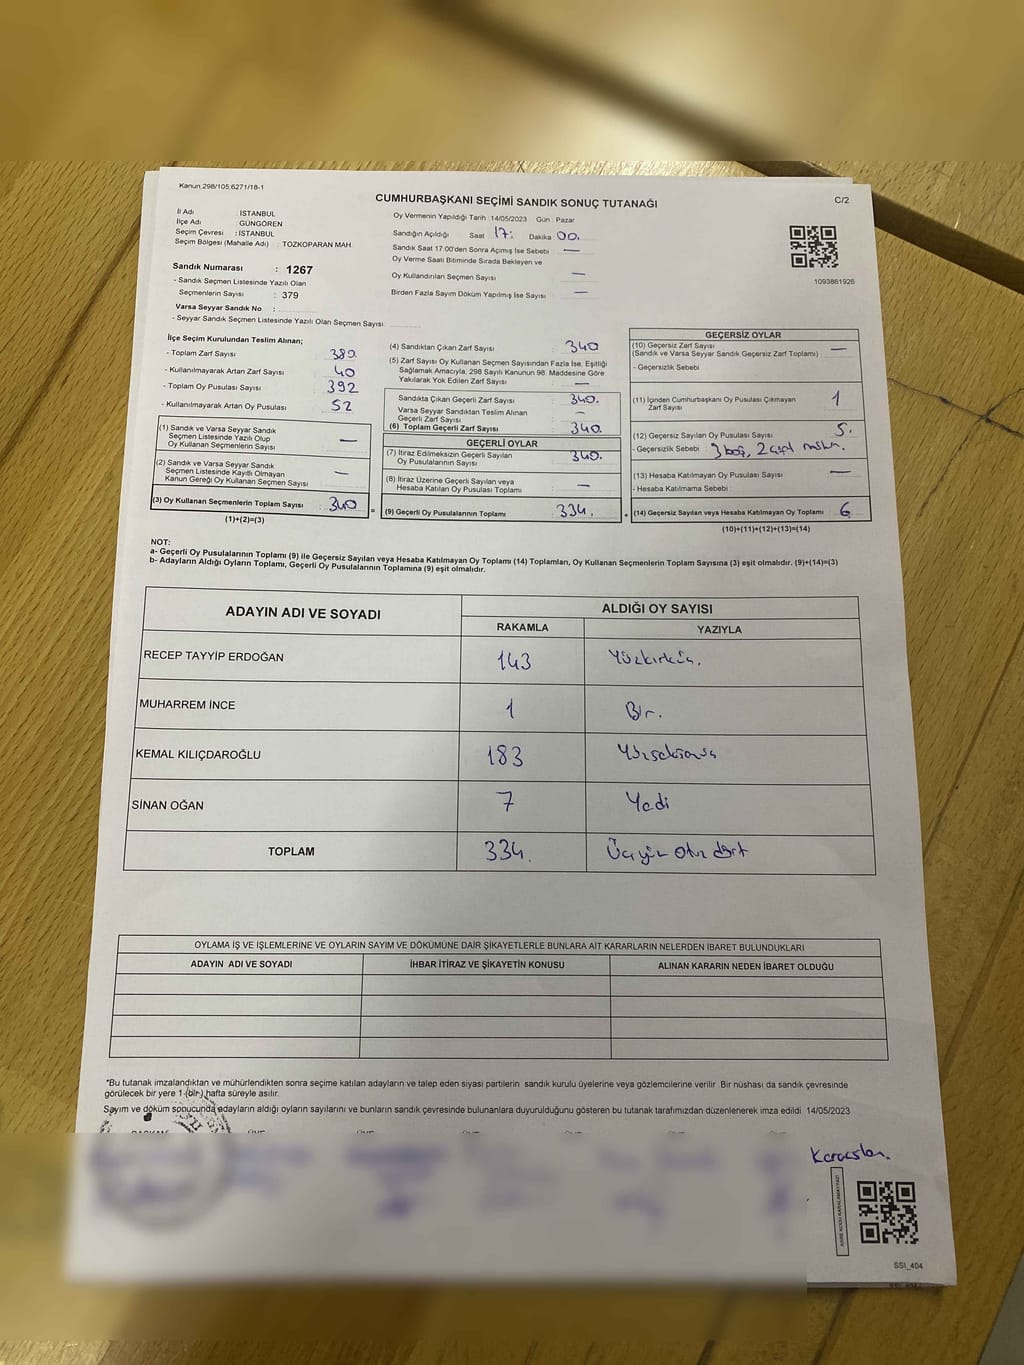 Kanun:298/105,6271/18-1
CUMHURBAŞKANI SEÇİMİ SANDIK SONUÇ TUTANAĞI
C/2
İl Adı : İSTANBUL
İlçe Adı : GÜNGÖREN
Seçim Çevresi : İSTANBUL
Seçim Bölgesi (Mahalle Adı) : TOZKOPARAN MAH
Sandık Numarası : 1267
- Sandık Seçmen Listesinde Yazılı Olan
Seçmenlerin Sayısı : 379
Varsa Seyyar Sandık No :
- Seyyar Sandık Seçmen Listesinde Yazılı Olan Seçmen Sayısı:
Oy Vermenin Yapıldığı Tarih : 14/05/2023 Gün : Pazar
Sandığın Açıldığı Saat 17: Dakika 00.
Sandık Saat 17:00'den Sonra Açımış İse Sebebi : —
Oy Verme Saati Bitiminde Sırada Bekleyen ve
Oy Kullandırılan Seçmen Sayısı : —
Birden Fazla Sayım Döküm Yapılmış İse Sayısı : —
1093861926
İlçe Seçim Kurulundan Teslim Alınan;
- Toplam Zarf Sayısı : 380
- Kullanılmayarak Artan Zarf Sayısı : 40
- Toplam Oy Pusulası Sayısı : 392
- Kullanılmayarak Artan Oy Pusulası : 52
(1) Sandık ve Varsa Seyyar Sandık
Seçmen Listesinde Yazılı Olup
Oy Kullanan Seçmenlerin Sayısı : —
(2) Sandık ve Varsa Seyyar Sandık
Seçmen Listesinde Kayıtlı Olmayan
Kanun Gereği Oy Kullanan Seçmen Sayısı : —
(3) Oy Kullanan Seçmenlerin Toplam Sayısı : 340
(1)+(2)=(3)
=
(4) Sandıktan Çıkan Zarf Sayısı : 340
(5) Zarf Sayısı Oy Kullanan Seçmen Sayısından Fazla İse, Eşitliği
Sağlamak Amacıyla, 298 Sayılı Kanunun 98. Maddesine Göre
Yakılarak Yok Edilen Zarf Sayısı : —
Sandıkta Çıkan Geçerli Zarf Sayısı : 340.
Varsa Seyyar Sandıktan Teslim Alınan
Geçerli Zarf Sayısı : —
(6) Toplam Geçerli Zarf Sayısı : 340.
GEÇERLİ OYLAR
(7) İtiraz Edilmeksizin Geçerli Sayılan
Oy Pusulalarının Sayısı : 340.
(8) İtiraz Üzerine Geçerli Sayılan veya
Hesaba Katılan Oy Pusulası Toplamı : —
(9) Geçerli Oy Pusulalarının Toplamı : 334.
+
GEÇERSİZ OYLAR
(10) Geçersiz Zarf Sayısı
(Sandık ve Varsa Seyyar Sandık Geçersiz Zarf Toplamı) : —
- Geçersizlik Sebebi :
(11) İçinden Cumhurbaşkanı Oy Pusulası Çıkmayan
Zarf Sayısı : 1
(12) Geçersiz Sayılan Oy Pusulası Sayısı : 5.
- Geçersizlik Sebebi : 3 boş, 2 çift mühür.
(13) Hesaba Katılmayan Oy Pusulası Sayısı : —
- Hesaba Katılmama Sebebi :
(14) Geçersiz Sayılan veya Hesaba Katılmayan Oy Toplamı : 6
(10)+(11)+(12)+(13)=(14)
NOT:
a- Geçerli Oy Pusulalarının Toplamı (9) ile Geçersiz Sayılan veya Hesaba Katılmayan Oy Toplamı (14) Toplamları, Oy Kullanan Seçmenlerin Toplam Sayısına (3) eşit olmalıdır. (9)+(14)=(3)
b- Adayların Aldığı Oyların Toplamı, Geçerli Oy Pusulalarının Toplamına (9) eşit olmalıdır.
ADAYIN ADI VE SOYADI
ALDIĞI OY SAYISI
RAKAMLA YAZIYLA
RECEP TAYYİP ERDOĞAN 143 Yüzkırküç.
MUHARREM İNCE 1 Bir.
KEMAL KILIÇDAROĞLU 183 Yüzseksenüç
SİNAN OĞAN 7 Yedi
TOPLAM 334. Üçyüz otuz dört
OYLAMA İŞ VE İŞLEMLERİNE VE OYLARIN SAYIM VE DÖKÜMÜNE DAİR ŞİKAYETLERLE BUNLARA AİT KARARLARIN NELERDEN İBARET BULUNDUKLARI
ADAYIN ADI VE SOYADI İHBAR İTİRAZ VE ŞİKAYETİN KONUSU ALINAN KARARIN NEDEN İBARET OLDUĞU
*Bu tutanak imzalandıktan ve mühürlendikten sonra seçime katılan adayların ve talep eden siyasi partilerin sandık kurulu üyelerine veya gözlemcilerine verilir .Bir nüshası da sandık çevresinde
görülecek bir yere 1 (bir) hafta süreyle asılır.
Sayım ve döküm sonucunda adayların aldığı oyların sayılarını ve bunların sandık çevresinde bulunanlara duyurulduğunu gösteren bu tutanak tarafımızdan düzenlenerek imza edildi 14/05/2023
Karaaslan.
SSI_404